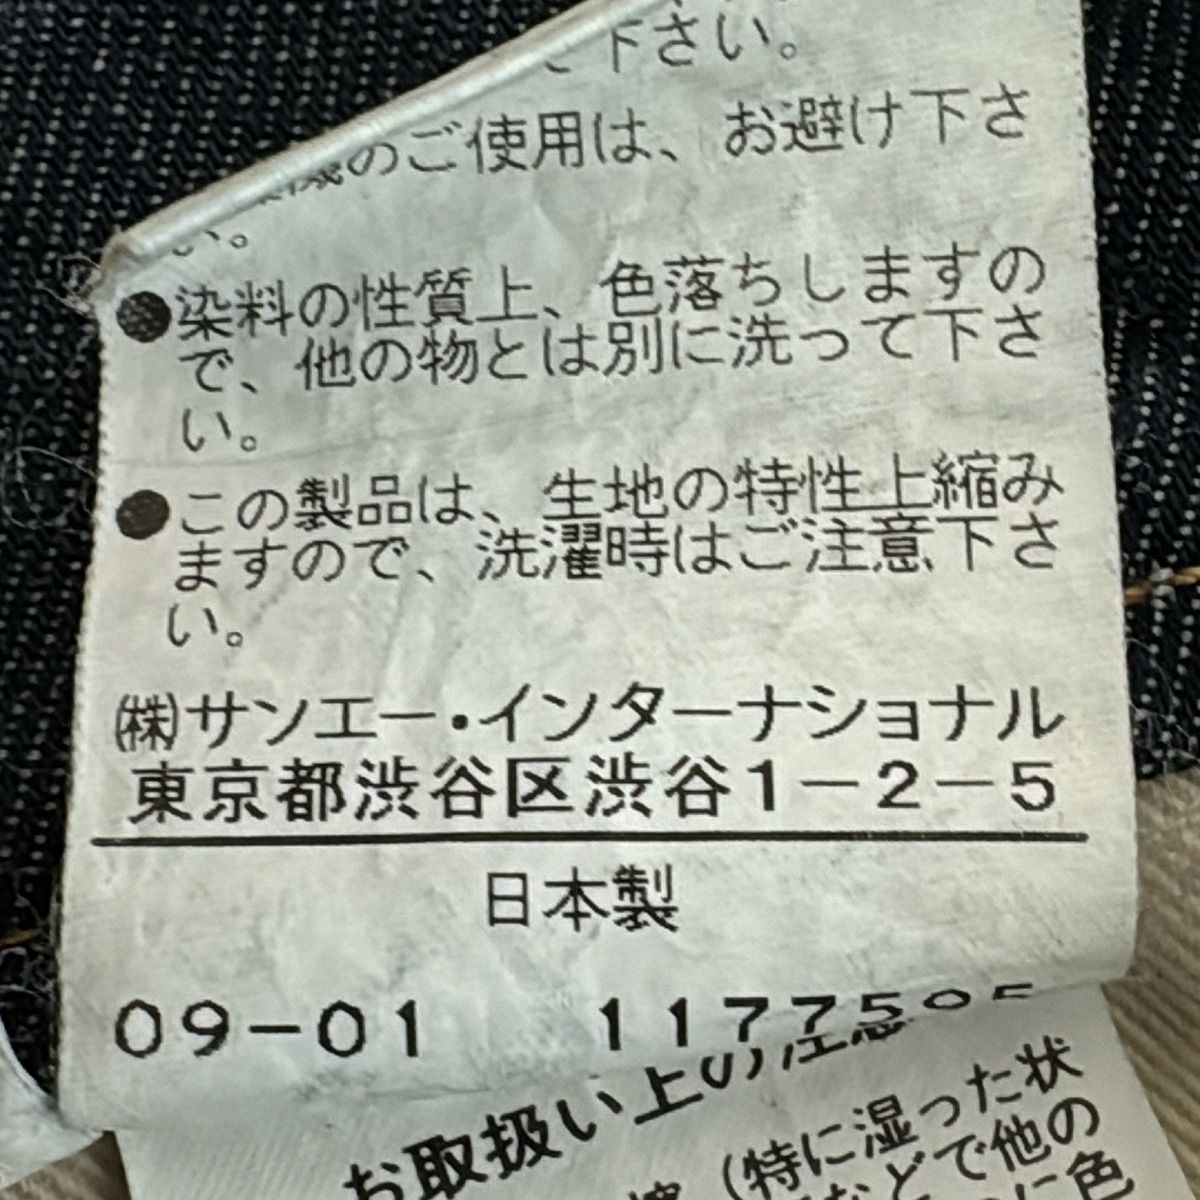 下さい。
のご使用は、お避け下さ
い。
●染料の性質上、色落ちしますの
で、他の物とは別に洗って下さ
い。
●この製品は、生地の特性上縮み
ますので、洗濯時はご注意下さ
い。
㈱サンエー・インターナショナル
東京都渋谷区渋谷1-2-5
日本製
09-01 1177505
お取扱い上の注意
(特に湿った状
などで他の
に色